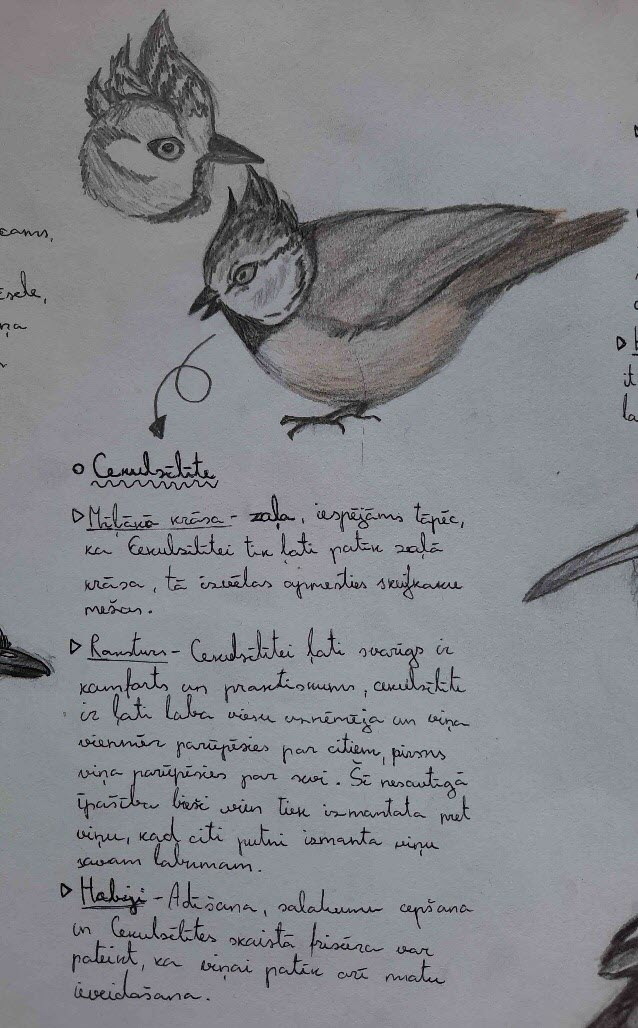 eams,
ēsele,
ņa
Cekulsīlīte
Mīļākā krāsa - zaļa, iespējāms tāpēc,
ka Cekulsīlītei tik ļati patīk zaļā
krāsa, tā izvēlas apmesties skujkoku
mežos.
Raksturs - Cekulsīlītei ļati svarīgs ir
komforts un praktiskums, cekulsīlīte
ir ļati laba viesu uzņēmēja un viņa
vienmēr parūpēsies par citiem, pirms
viņa parūpēsies par sevi. Šī nesavtīgā
īpašība bieži vien tiek izmantota pret
viņu, kad citi putni izmanta viņu
savam labumam.
Hobiji - Adīšana, salakumu cepšana
un Cekulsīlītes skaistā frizūra var
pateikt, ka viņai patīk arī matu
ieveidošana.
it
la